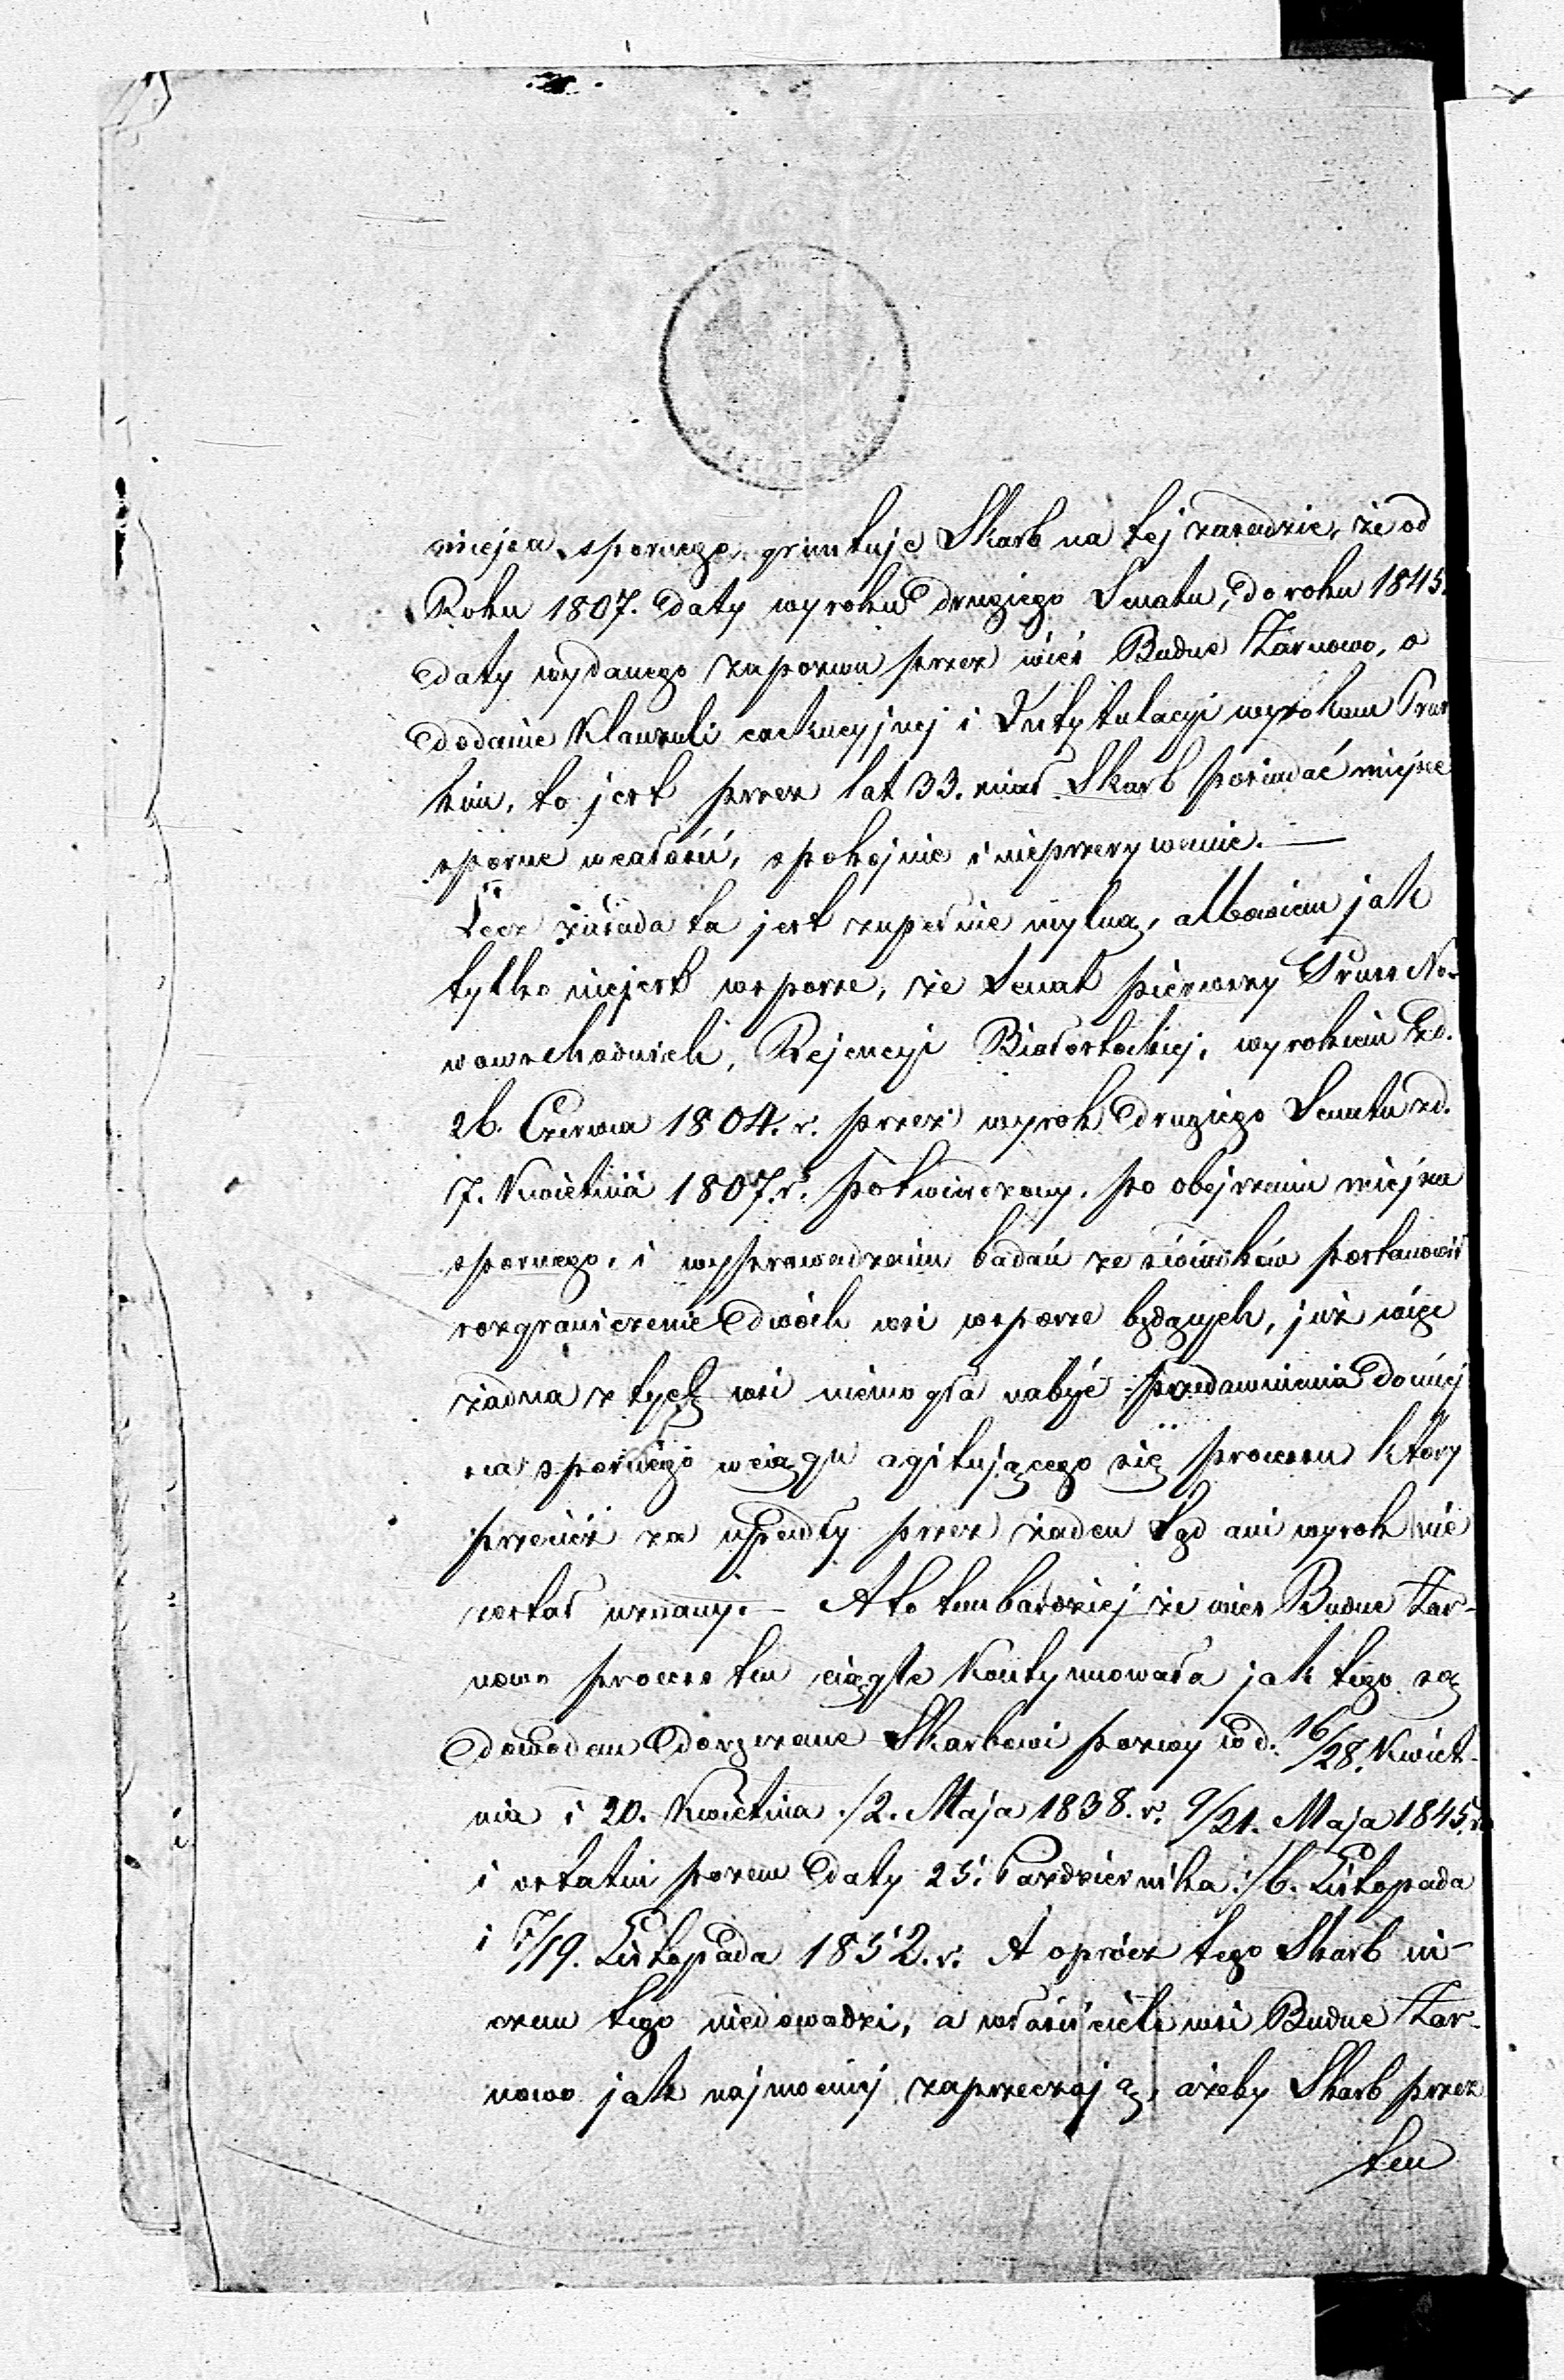 miejsca spornego, gruntuje Skarb na tej zasadzie, że od
Roku 1807. daty wyroku drugiego Senatu, do roku 1845.
daty wydanego zapozwu przez wieś Budne Żarnowo, o
dodanie Klauzuli exekucyjnej i Intytulacyi wyrokom Prus
kim, to jest przez lat 33. miał Skarb posiadać miejsce
sporne w całości, spokojnie i nieprzerywanie. —
Lecz zasada ta jest zupełnie mylną, albowiem jak
tylko niejest wsporze, że Senat piérwszy Pruss No-
wowschodnich, Rejencyi Białostockiej, wyrokiem zd.
26. Czerwca 1804. r. przez wyrok drugiego Senatu zd.
7. Kwietnia 1807. r. potwierdzony, po obejrzeniu miejsca
spornego, i wyprowadzeniu badań ze świadków postanowił
rozgraniczenie dwóch wsi wsporze będących, już więc
żadna z tych wsi niemogła nabyć przedawnienia do miej
sca spornego wciągu agitującego się processu który
przecież za upadły przez żaden Sąd ani wyrok nie
został uznany. — A to tembardziej że wieś Budne Żar-
nowo process ten ciągle kontynuowała jak tego są
dowodem doręczane Skarbowi pozwy w d. 16/28. Kwiet-
nia i 20. Kwietnia /2. Maja 1838. r. 9/21. Maja 1845. r.
i ostatni pozew daty 25. Pazdziernika /6. Listopada
i 7/19. Listopada 1852. r. A oprócz tego Skarb ni-
czem tego niedowodzi, a właściciele wsi Budne Żar-
nowo jak najmocniej zaprzeczają, ażeby Skarb przez
ten